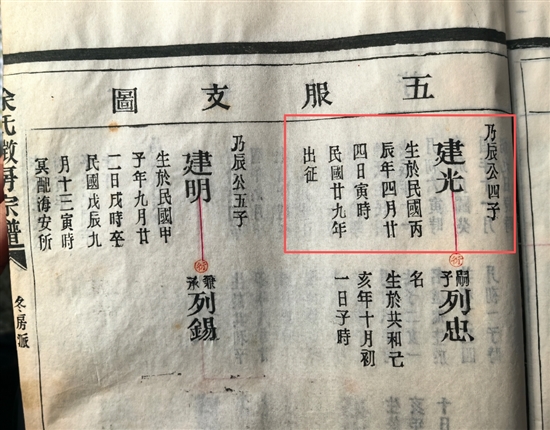 五服支圖
乃辰公四子
建光
生於民國丙
辰年四月廿
四日寅時
民國廿九年
出征
嗣子
列忠
名
生於共和己
亥年十月初
一日子時
乃辰公五子
建明
生於民國甲
子年九月廿
二日戌時卒
民國戊辰九
月十三寅時
冥配海安所
兼承
列錫
余氏宗譜
冬房派